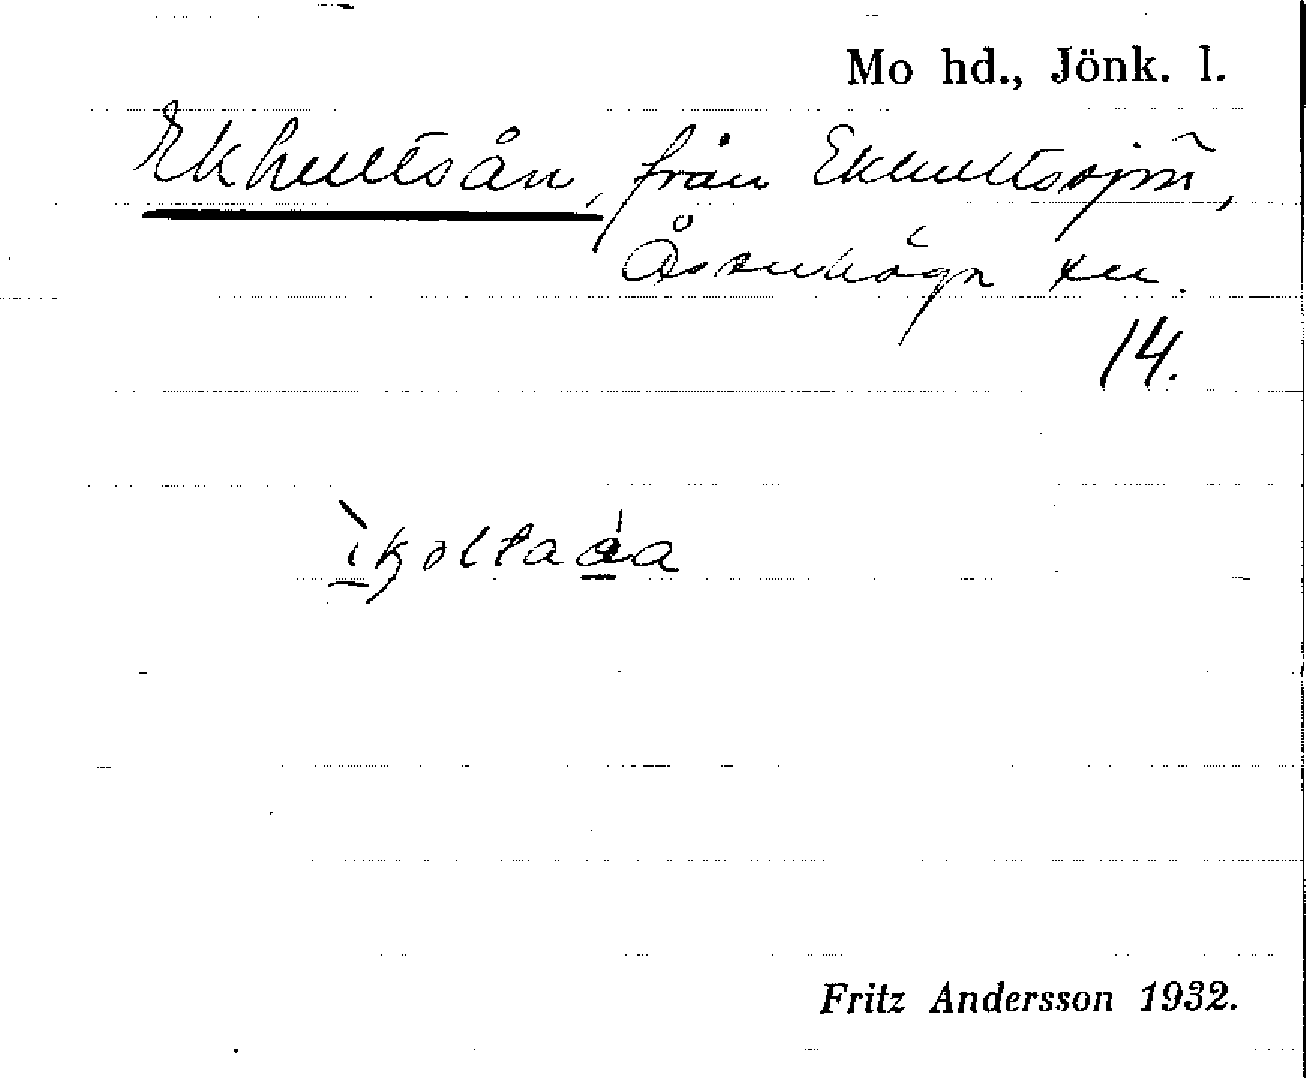 Mo hd., Jönk. l.
Ekhultsån, från Ekhultssjön,
Åsenhöga sn.
14.
Fritz Andersson 1932.